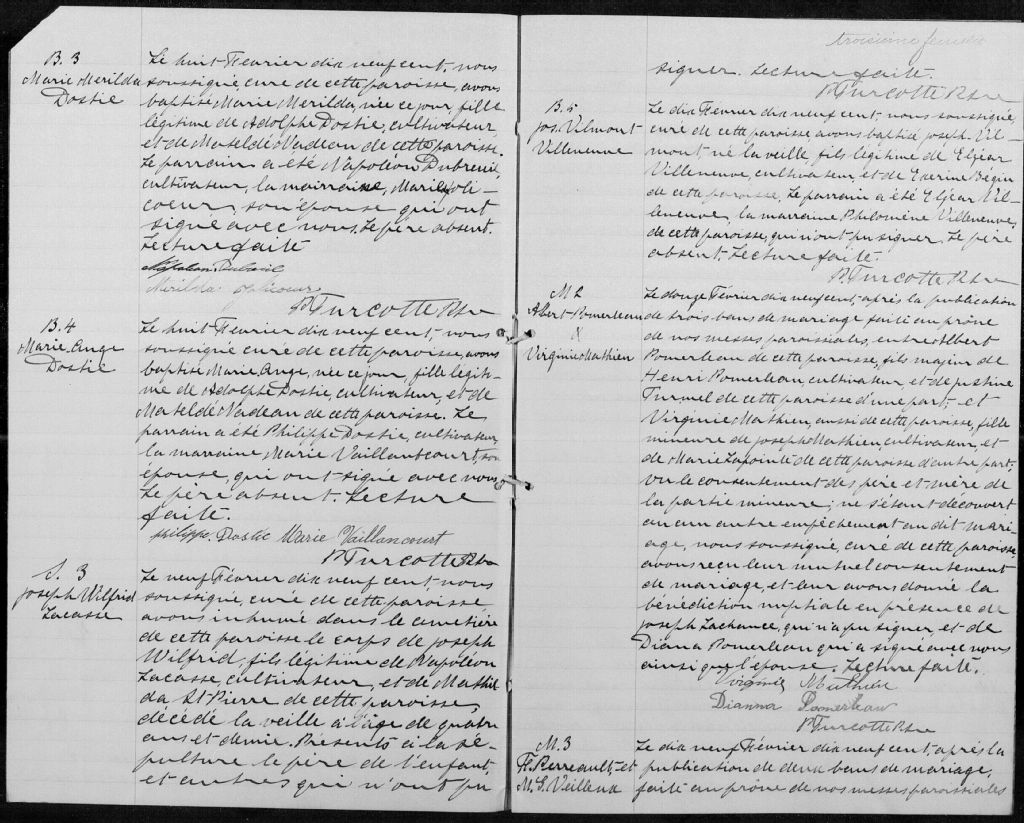 B. 3
Marie Merilda
Dostie
Le huit Février dix neuf cent, nous
soussigné, curé de cette paroisse, avons
baptisé Marie Merilda, née ce jour, fille
légitime de Adolphe Dostie, cultivateur,
et de Mateldé Nadeau de cette paroisse.
Le parrain a été Napoléon Dubreuil,
cultivateur, la marraine, Marie Joli-
coeur, son épouse qui ont
signé avec nous. Le père absent.
Lecture faite
Napoléon Dubreuil
Mérilda Jolicoeur
P. Turcotte Ptre
B. 4
Marie Ange
Dostie
Le huit Février dix neuf cent, nous
soussigné curé de cette paroisse, avons
baptisé Marie Ange, née ce jour, fille légiti-
me de Adolphe Dostie, cultivateur, et de
Mateldé Nadeau de cette paroisse. Le
parrain a été Philippe Dostie, cultivateur,
la marraine Marie Vaillantcourt, son
épouse, qui ont signé avec nous.
Le père absent. Lecture
faite.
Philippe Dostie Marie Vaillancourt
P. Turcotte Ptre
S. 3
Joseph Wilfrid
Lacasse
Le neuf Février dix neuf cent, nous
soussigné, curé de cette paroisse,
avons inhumé dans le cimetière
de cette paroisse le corps de Joseph
Wilfrid, fils légitime de Napoléon
Lacasse, cultivateur, et de Mathil
da St Pierre de cette paroisse,
décédé la veille à l'âge de quatre
ans et demie. Présents à la sé-
pulture le père de l'enfant,
et autres qui n'ont pu
troisième feuillet
signer. Lecture faite.
P. Turcotte Ptre
B. 5
Jos. Vilmont
Villeneuve
Le dix Février dix neuf cent, nous soussigné,
curé de cette paroisse avons baptisé Joseph Vil-
mont né la veille, fils légitime de Elzéar
Villeneuve, cultivateur, et de Exerine Bégin
de cette paroisse. Le parrain a été Elzéar Vil-
leneuve, la marraine Philomène Villeneuve,
de cette paroisse, qui n'ont pu signer. Le père
absent. Lecture faite.
P. Turcotte Ptre
M 2
Albert Pomerleau
&
Virginie Mathieu
Le douze Février dix neuf cent, après la publication
de trois bans de mariage faite au prône
de nos messes paroissiales, entre Albert
Pomerleau de cette paroisse, fils majeur de
Henri Pomerleau, cultivateur et de Justine
Turmel de cette paroisse d'une part; et
Virginie Mathieu, aussi de cette paroisse, fille
mineure de Joseph Mathieu, cultivateur, et
de Marie Lapointe de cette paroisse d'autre part;
vu le consentement des père et mère de
la partie mineure; ne s'étant découvert
aucun autre empêchement au dit mari-
age, nous soussigné, curé de cette paroisse,
avons reçu leur mutuel consentement
de mariage, et leur avons donné la
bénédiction nuptiale en présence de
Joseph Lachance, qui n'a pu signer, et de
Diana Pomerleau qui a signé avec nous
ainsi que l'épouse. Lecture faite.
Virginie Mathieu
Dianna Pomerleau
P. Turcotte Ptre
M. 3
Perreault, et
M. S. Veilleux
Le dix neuf Février dix neuf cent, après la
publication de deux bans de mariage,
faite au prône de nos messes paroissiales